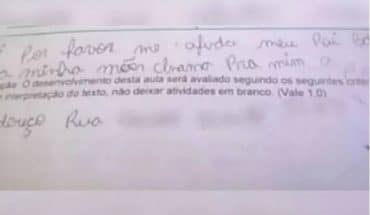 Por favor me ajuda meu Pai
a minha mãe chama Pra mim a
O desenvolvimento desta aula será avaliado seguindo os seguintes
interpretação do texto, não deixar atividades em branco. (Vale 1,0)
Rua